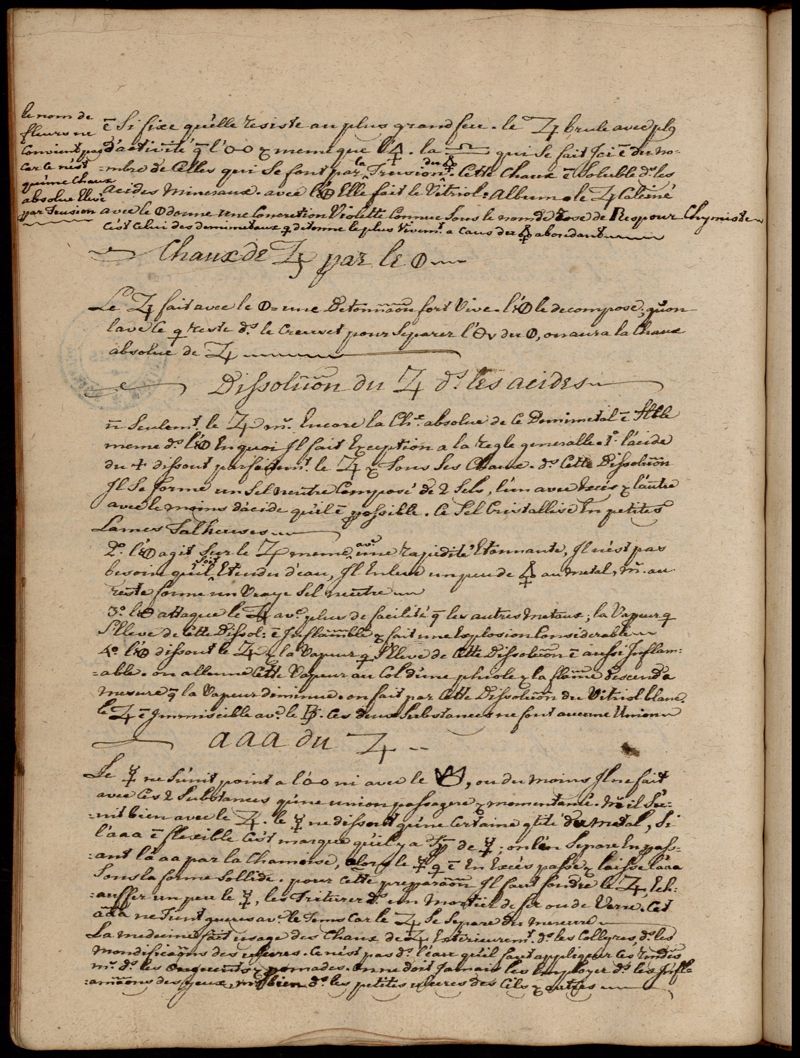 le nom de
fleurs ne
Convient pas
Car le n'est
qu'une Chaux
absolue Elevé
par Fusion
ē Si fixe qu'elle resiste au plus grand feu. le Z brule avec plꝰ
d'activité q̄ l'oo & meme que le 🜍. la qui se fait Ici ē du no-
-mbre de Celles qui Se font par la Fusion. Cette Chaux ē soluble dˢ les
acides Mineraux. avec l' Elle fait le Vitriol: Album. le Z Calciné
avec le 🜕 donne une Concretion Violette Connue Sous le nom de Respour Chymiste
C'est Celui des demimetaux q̄ detonne le plus Vivemᵗ. a Caus du 🜍 abondant
Chaux de Z par le 🜕
Le Z fait avec le 🜕 une Detonnāon fort Vive. le decompose, qu'on
lave le q̄ reste dˢ. le Creuset pour Separer l' du 🜕, on aura la Chaux
absolue de Z
Dissoluōn du Z dˢ. les acides
n̄ Seulemᵗ. le Z mˢ. Encore la Chˣ. absolue de Ce Demimetal ē
meme dˢ. l' En quoi Il fait Exception a la regle generalle. 1º. l'acide
du + dissout parfaitemᵗ. le Z & Sous Ses Chaux. dˢ. Cette Dissoluōn
Il Se forme un Sel neutre Composé de 2 Sels, l'un avec Exces & l'autre
avec le moins d'acide qu'il ē possible. Ce Sel Cristallise En petites
Lames Talkeuses
2º. l' agit Sur le Z meme avᶜ. une rapidité Etonnante, Il n'est pas
besoin qu'il soit Etendu d'eau, Il Enleve un peu de 🜍 au metal, mˢ. au
reste forme un Vraye Sel neutre
3º. le attaque le Z avᶜ. plus de facilité q̄ les autres metaux; la Vapeur q̄
S'Eleve de Cette Dissol: ē Inflammble & fait une Explosion Considerable
4º. l' dissout le Z & la Vapeur q̄ S'Eleve de Cette Dissoluōn ē aussi Inflam-
-able. on allume Cette Vapeur au Col d'une phiole & la flame descend a
mesure q̄ la Vapeur diminue. on fait par Cette Dissoluōn du Vitriol blanc.
le Z ē Immiscible avᶜ. le B. Ces deux Substances ne font aucune Union
aaa du Z
Le ☿ ne S'unit point a l'oo ni avec le , ou du moins Il ne fait
avec Ces 2 Substances qu'une union passagere & momentanée. mˢ. il S'u-
-nit bien avec le Z. le ☿ ne dissout qu'une Certaine qtité du metal, Si
l'aaa ē flexible C'est marque qu'il y a de ☿; on l'en Separe En pass-
-ant l'aaa par la Chamoise, alors le ☿ q̄ ē En Exces passe & laisse l'aaa
Sous la forme Sollide. pour Cette preparāon Il faut fondre le Z, Ech-
-auffer un peu le ☿, les Triturer dˢ. un Mortier de fer ou de Verre. Cet
aaa ne Tient gueres avᶜ. le Tems Car le Z Se Separe du mercure
La medecine fait usage des Chaux de Z Exterieuremᵗ. dˢ. les Collyres, dˢ. les
mondificatifs des ulceres. Ce n'est pas dˢ. l'eau qu'il faut appliquer Ces remedes
mˢ. dˢ. les onguents & pomades. on ne doit Jamais les Employer dˢ. les Infla-
-amāons des yeux, mˢ. bien dˢ. les petites ulceres des Cils & autres